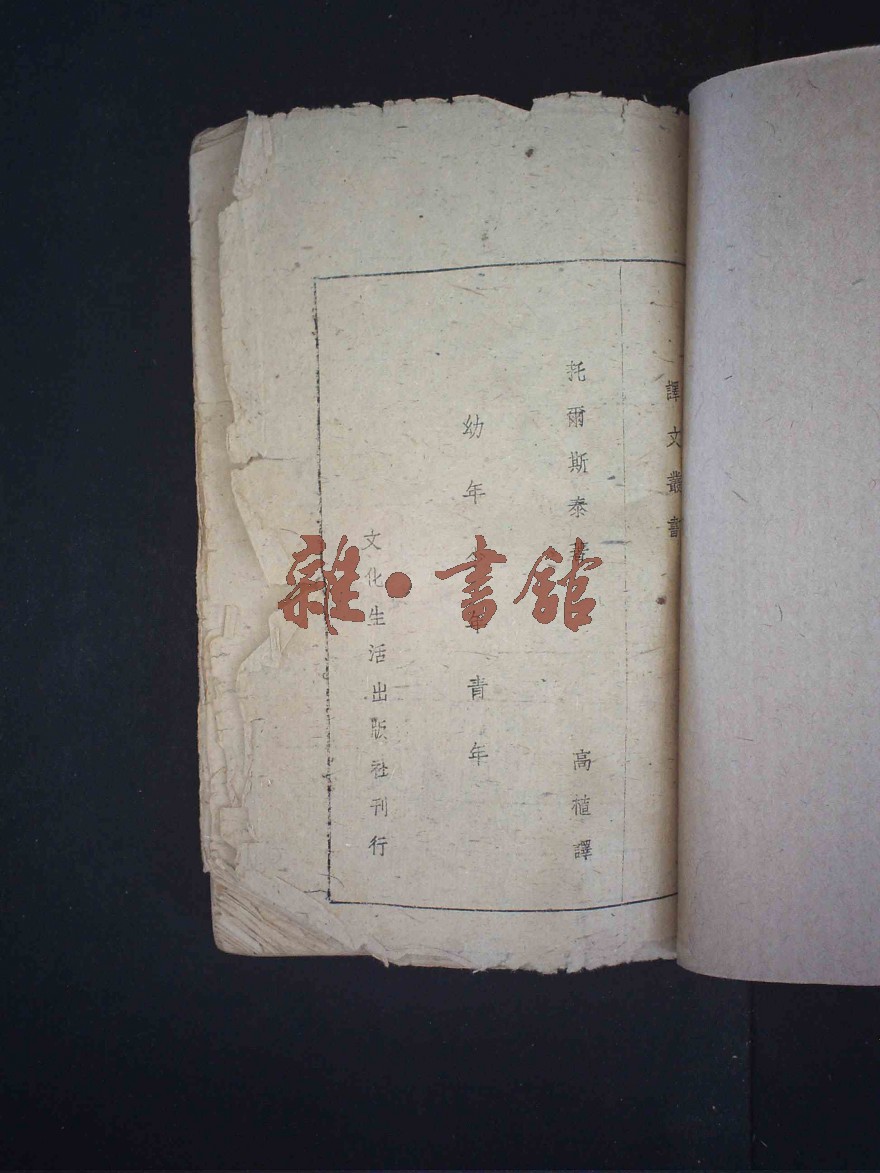 譯文叢書
托爾斯泰著
高植譯
幼年 少年 青年
文化生活出版社刊行
雜·書館